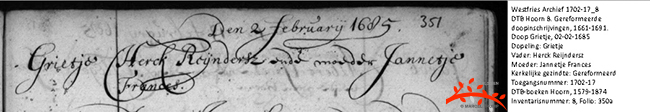 Den 2 february 1685.
351
Grietje Herck Reijnders ende moeder Jannetje
Frances.
Westfries Archief 1702-17_8
DTB Hoorn 8. Gereformeerde
doopinschrijvingen, 1661-1691.
Doop Grietje, 02-02-1685
Dopeling: Grietje
Vader: Herck Reijndersz
Moeder: Jannetje Frances
Kerkelijke gezindte: Gereformeerd
Toegangsnummer: 1702-17
DTB-boeken Hoorn, 1579-1874
Inventarisnummer: 8, Folio: 350a